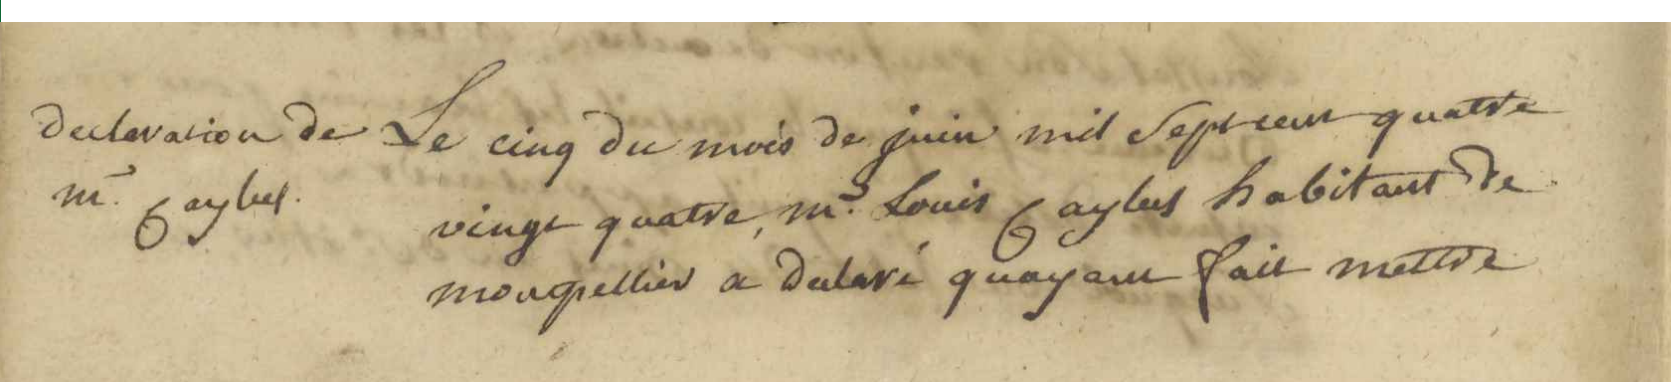 declaration de
mr. Caylus.
Le cinq du mois de juin mil sept cent quatre
vingt quatre, mr. Louis Caylus habitant de
montpellier a declaré quayant fait mettre